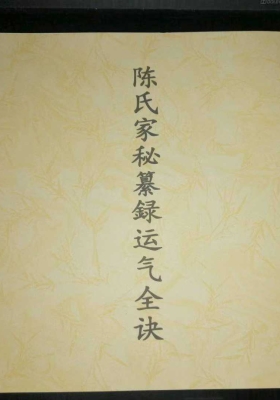 陈氏家秘纂録运气全诀